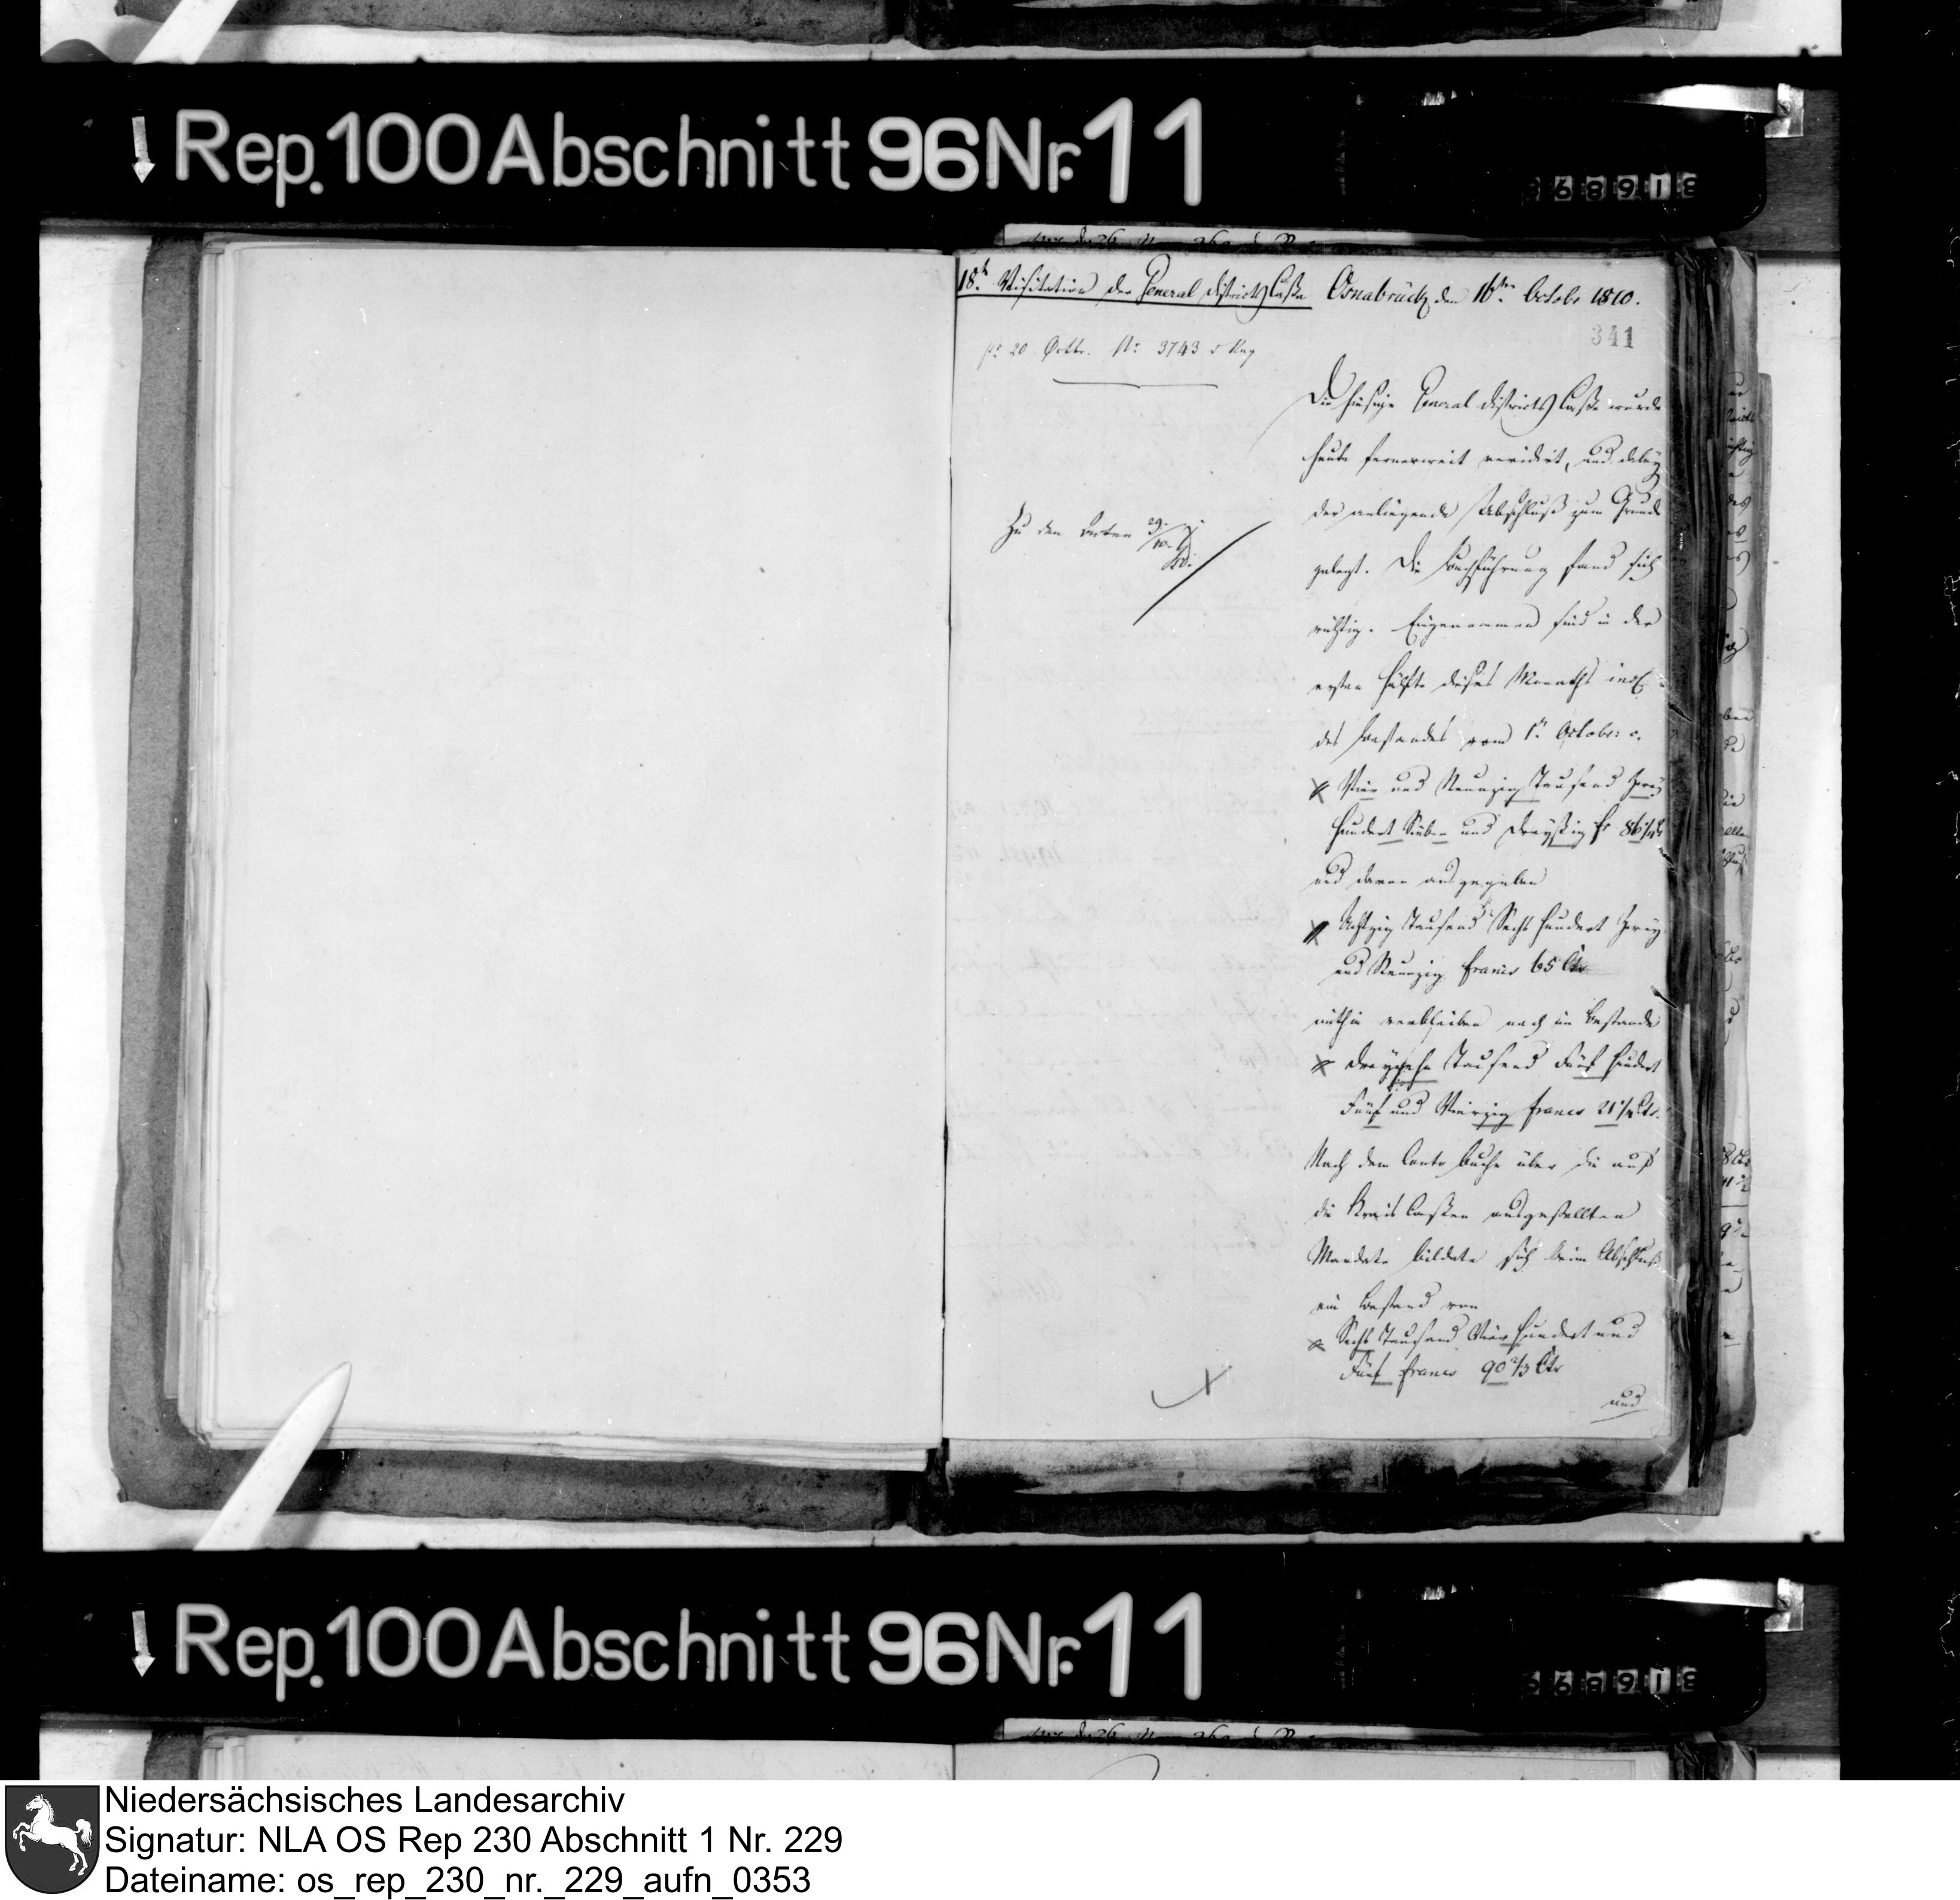 Rep. 100 Abschnitt 96 Nr. 11
18te Visitation der General Districts Casse Osnabrück den 16ten Octobr 1810.
341
pr. 20 Octbr. Nr. 3743
Die hiesige General Districts Casse wurde
heute fernerweit revidirt, und dabey
der anliegende Abschluß zum Grunde
gelegt. Die Buchführung fand sich
richtig. Eingenommen sind in der
ersten Hälfte dieses Monaths incl.
des Bestandes vom 1ten October c.
Zu den Acten 29/10.
Vier und Neunzig Tausend Zwey
hundert Sieben und Dreyßig fr 86 1/4
und davon ausgegeben
Achtzig Tausend Sechs hundert Zwey
und Neunzig Francs 65 Cts
mithin verbleiben noch im Bestande
Dreyzehn Tausend Fünf hundert
Fünf und Vierzig Francs 21 1/4 Cts.
Nach dem Conto Buche über die auf
die Kreis Cassen ausgestellten
Mandate bildete sich beim Abschluß
ein Bestand von
Sechs Tausend Vier hundert und
Fünf Francs 90 2/3 Cts
und
Rep. 100 Abschnitt 96 Nr. 11
Niedersächsisches Landesarchiv
Signatur: NLA OS Rep 230 Abschnitt 1 Nr. 229
Dateiname: os_rep_230_nr._229_aufn_0353